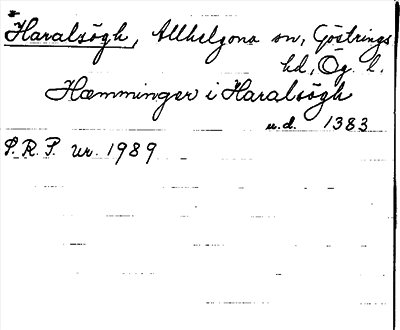 *Haralsögh, Allhelgona sn, Göstrings
hd, Ög. l.
Hæmminger i Haralsögh
u.d. 1383
S.R.P. nr. 1989